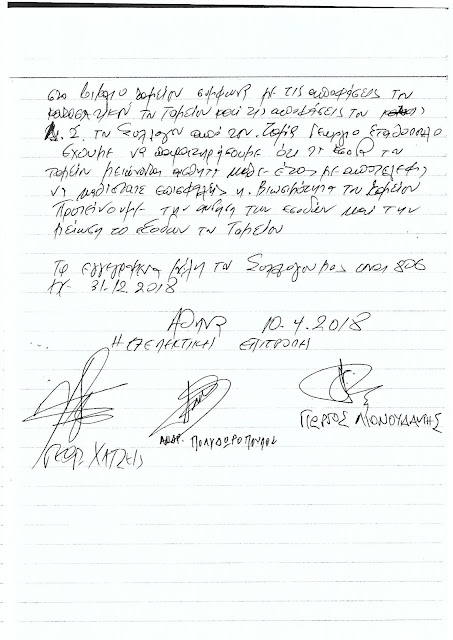 στο βιβλίο ταμείου σύμφωνα με τις αποφάσεις του
του Ταμείου και τις αποφάσεις του
Δ.Σ. του Συλλόγου από τον Ταμία Γεώργιο Σταθόπουλο
Έχουμε να παρατηρήσουμε ότι τα έσοδα του
ταμείου μειώνονται αισθητά κάθε έτος με αποτέλεσμα
να καθίσταται επισφαλής η βιωσιμότητα του Ταμείου
Προτείνουμε την αύξηση των εσόδων και την
μείωση το εξόδων του Ταμείου
Τα εγγεγραμμένα μέλη του Συλλόγου μας είναι 806
31-12-2018
ΑΘΗΝΑ 10-4-2018
Η ΕΞΕΛΕΚΤΙΚΗ ΕΠΙΤΡΟΠΗ
ΓΕΩΡ ΧΑΤΖΕΙΣ
ΑΝΔΡ. ΠΟΛΥΔΩΡΟΠΟΥΛΟΣ
ΓΙΩΡΓΟΣ ΛΙΟΝΟΥΔΑΚΗΣ